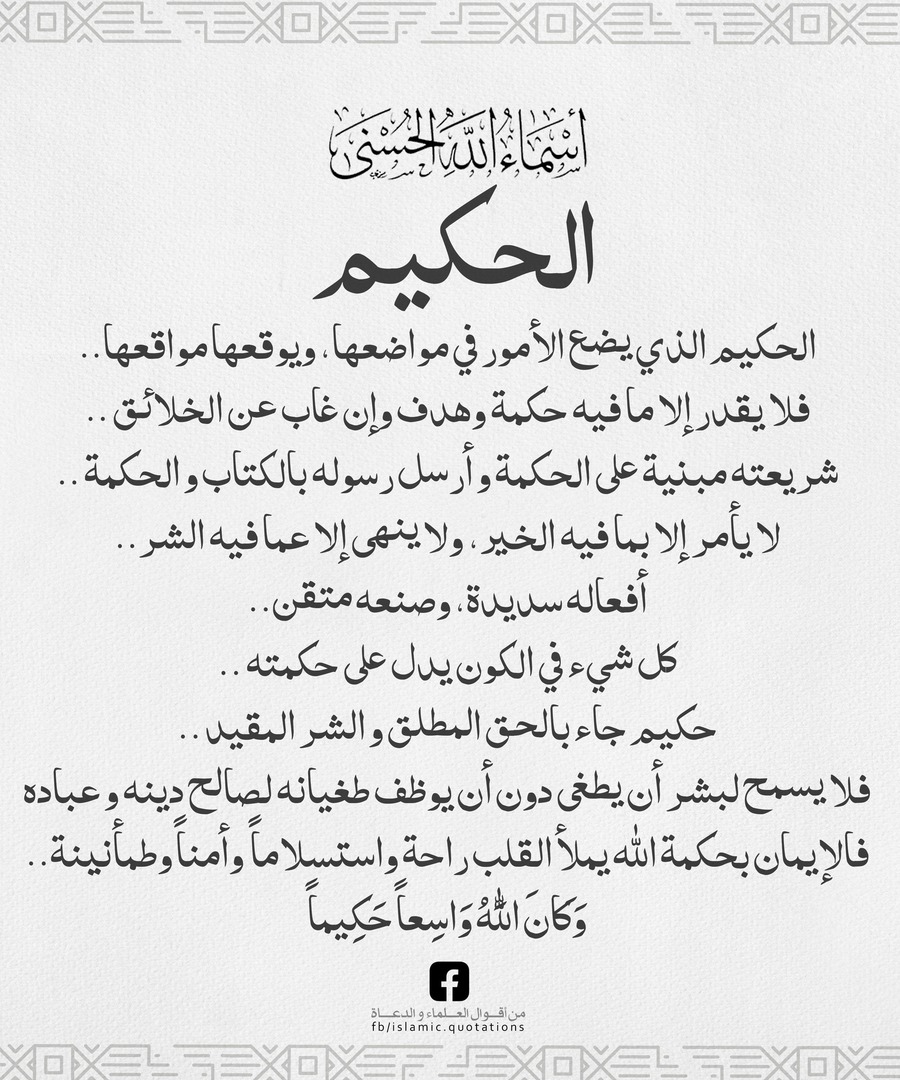 أَسْمَاءُ اللَّهِ الْحُسْنَى
الحكيم
الحكيم الذي يضع الأمور في مواضعها، ويوقعها مواقعها..
فلا يقدر إلا ما فيه حكمة وهدف وإن غاب عن الخلائق..
شريعته مبنية على الحكمة وأرسل رسوله بالكتاب والحكمة..
لا يأمر إلا بما فيه الخير، ولا ينهى إلا عما فيه الشر..
أفعاله سديدة، وصنعه متقن..
كل شيء في الكون يدل على حكمته..
حكيم جاء بالحق المطلق والشر المقيد..
فلا يسمح لبشر أن يطغى دون أن يوظف طغيانه لصالح دينه وعباده
فالإيمان بحكمة الله يملأ القلب راحة واستسلاماً وأمناً وطمأنينة..
وَكَانَ اللهُ وَاسِعاً حَكِيماً
من أقـوال العلـماء والدعـاة
fb/islamic.quotations